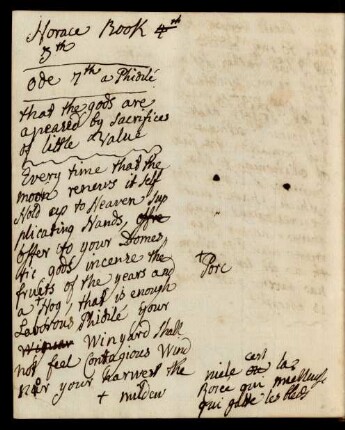 Horace Book 4th
3th
Ode 7th a Phidilé
that the gods are
apeared by Sacrifices
of little Value
Every time that the
moon renews it self
Hold up to Heaven Sup
plicating Hands, offre
offer to your Domes
tic gods incense the
fruits of the years and
a +Hog, that is enough
Laborous Phidilé your
Winyard shall
not feel Contagious Wind
nor your Harwest the
+ mildew
+Porc
niele c'est la
qui gatte les bleds